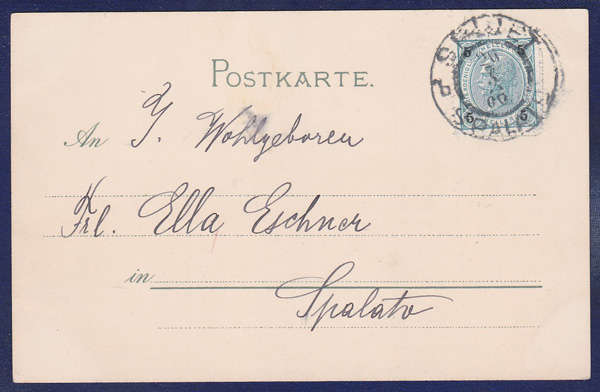 POSTKARTE.
An J. Wohlgeboren
Frl. Ella Eschner
in
Spalato
5 5
5 5
SPALATO